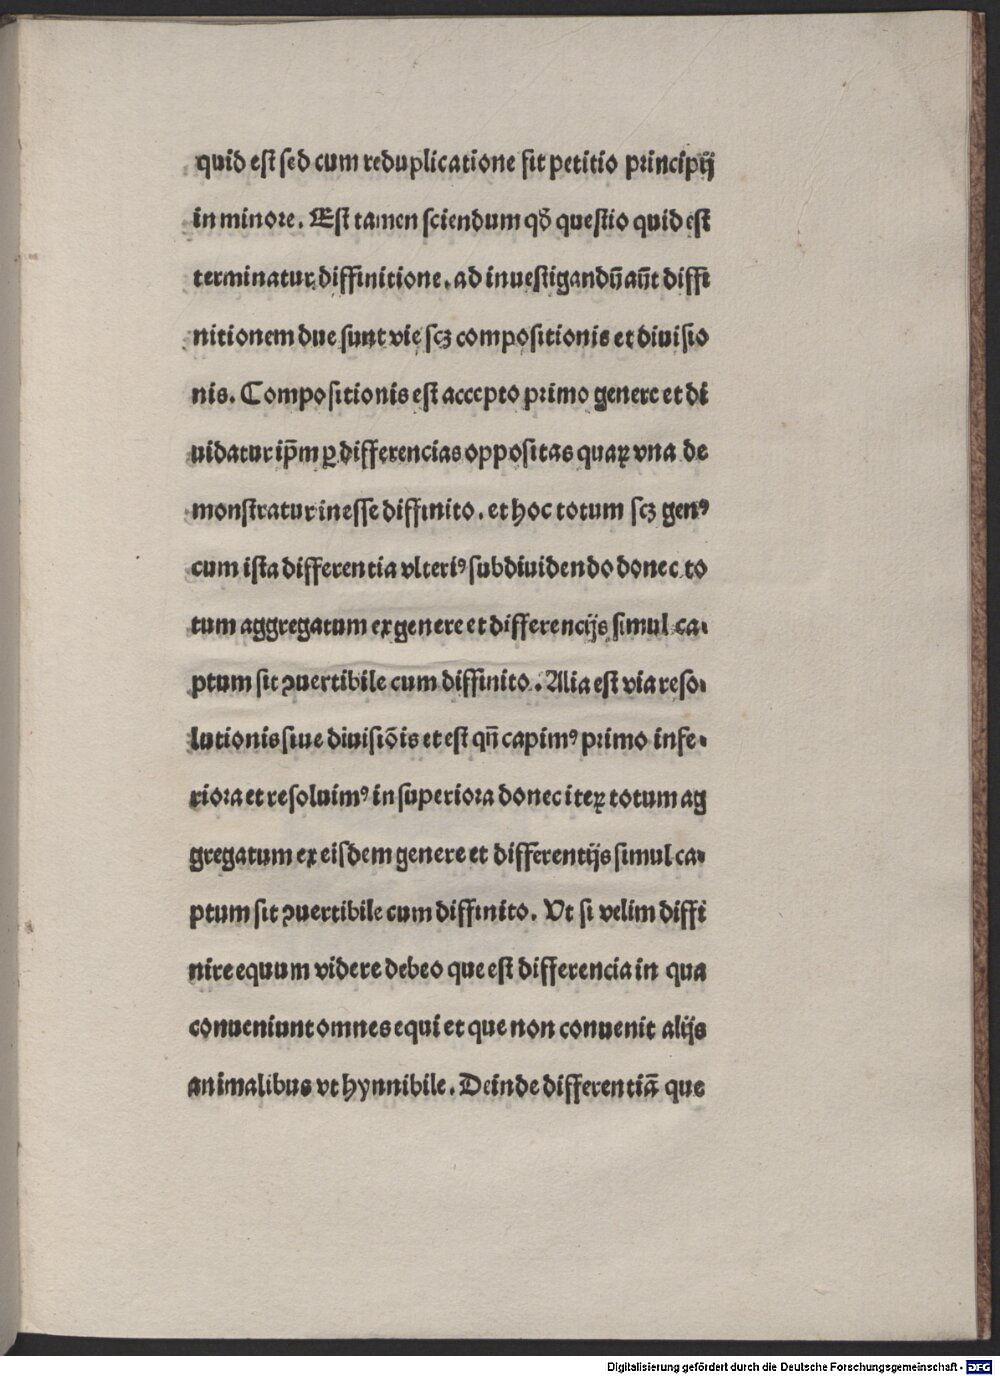 quid est sed cum reduplicatione sit petitio principij
in minore. Est tamen sciendum qđ questio quid est
terminatur diffinitione. ad inuestigandū aūt diffi
nitionem due sunt vie scꝫ compositionis et diuisio
nis. Compositionis est accepto primo genere et di
uidatur ip̄m ꝑ differencias oppositas quaꝝ vna de
monstratur inesse diffinito. et hoc totum scꝫ genꝰ
cum ista differentia vlteriꝰ subdiuidendo donec to
tum aggregatum ex genere et differencijs simul ca-
ptum sit ꝯuertibile cum diffinito. Alia est via reso-
lutionis siue diuisiōis et est qn̄ capimꝰ primo infe-
riora et resoluimꝰ in superiora donec iteꝝ totum ag
gregatum ex eisdem genere et differentijs simul ca-
ptum sit ꝯuertibile cum diffinito. Vt si velim diffi
nire equum videre debeo que est differencia in qua
conueniunt omnes equi et que non conuenit alijs
animalibus vt hynnibile. Deinde differentiā que
Digitalisierung gefördert durch die Deutsche Forschungsgemeinschaft - DFG